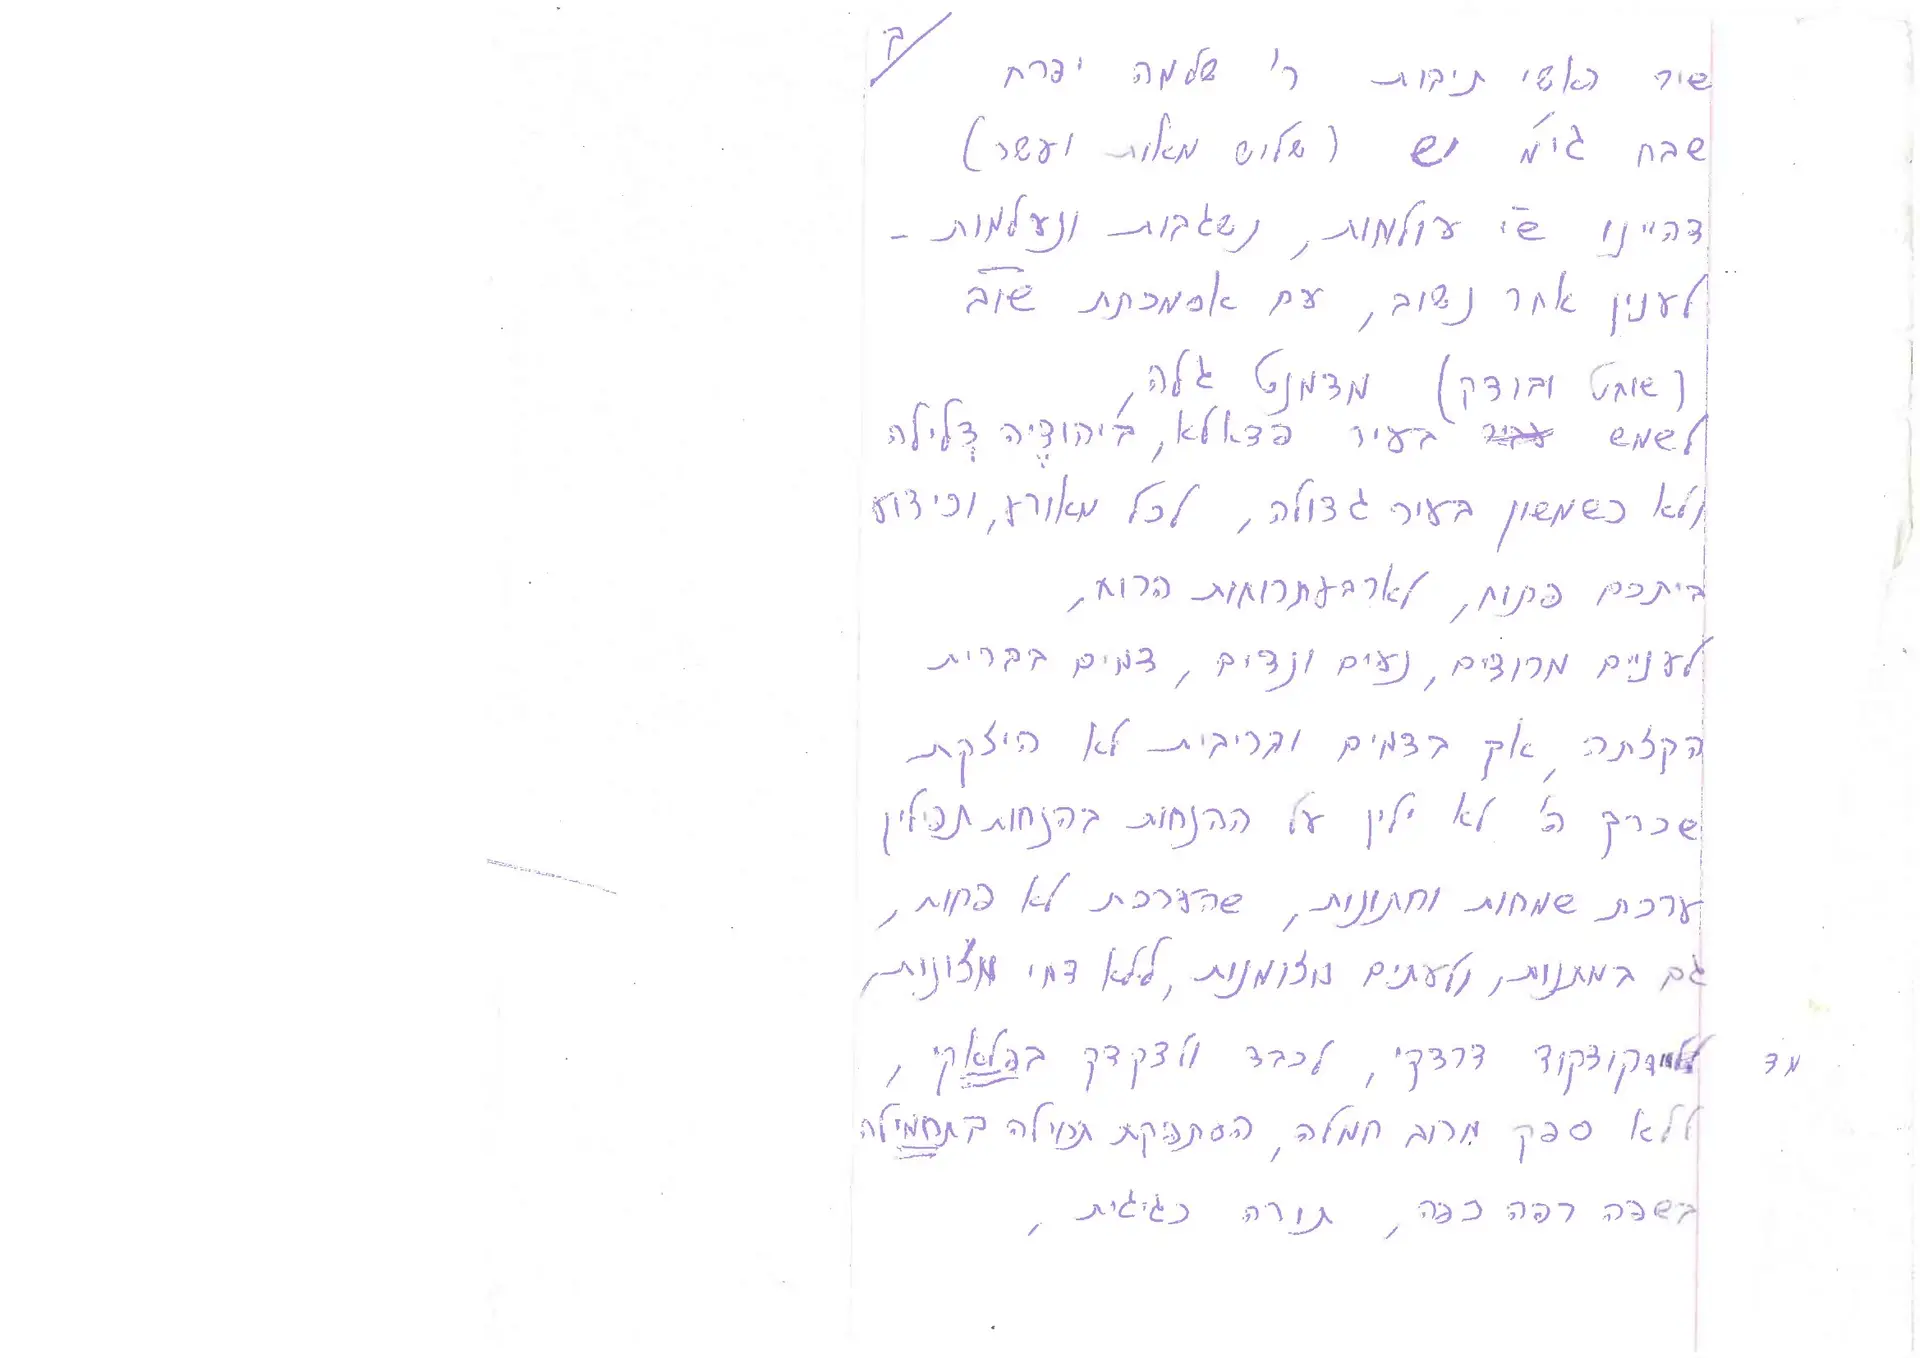 ב
שיר ראשי תיבות ר' שלמה יפרח
שבח גי"מ יש (שליש מאות ועשר)
דהיינו ש"י עולמות, נשגבות ונעלמות -
לענין אחר נשוב, עם אסמכתת שוב
(שוחט ובודק) מדמנט גלה,
לשמש בעיר פדאלא, ביהודיה דלילה
ולא כשמשון בעיר גדולה, לכל מאורע, וכידוע
ביתכם פתוח, לארבעת רוחות הרוח,
לעניים מרודים, נעים ונדים, דמים בברית
הקצתה, אך בדמים ובריבית לא היצקת
שכרך ה' לא ילין על ההנחות בהנחות תפילין
ערכת שמחות וחתונות, שהערכת לא פחות,
גם במתנות, וטעתים מזומנות, ללא דמי מזונות,
מד קודקוד דרדקי, לכבד ולדקדק בפלאקי,
ללא ספק מרוב חמלה, הסתפקת תכילה בתחמילה
בשפה רפה כפה, תורה כגיגית,